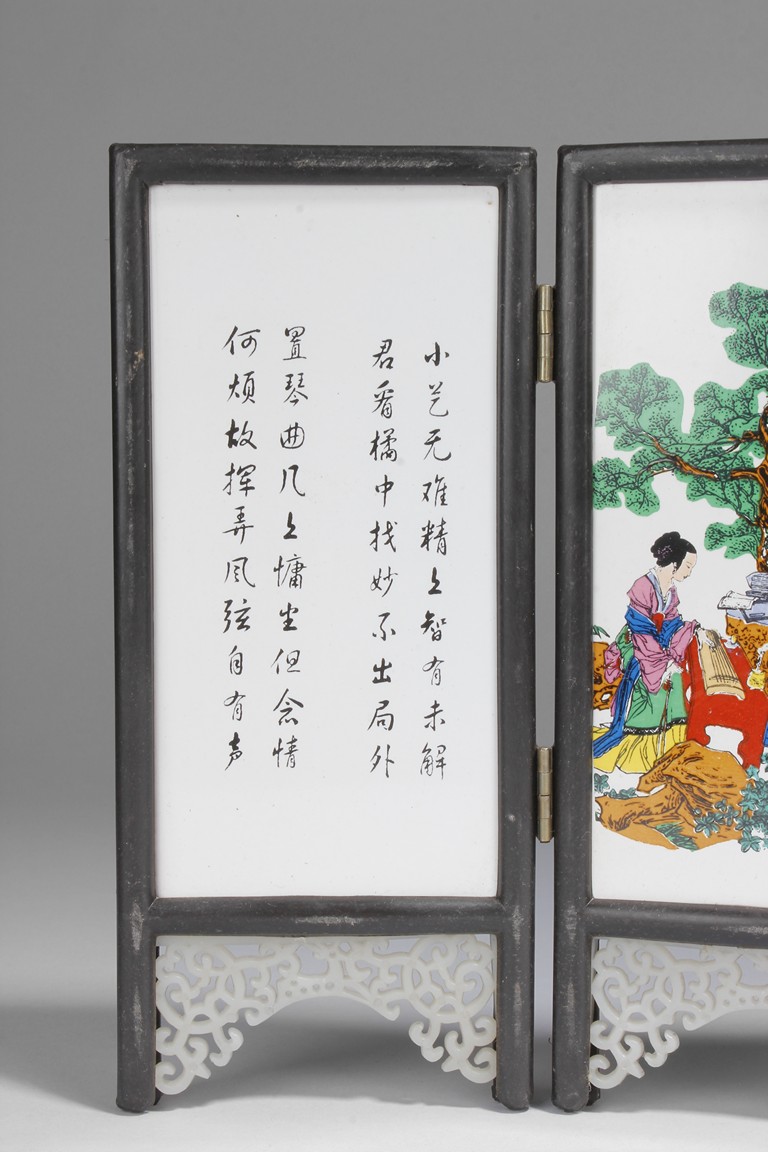 小艺无难精上智有未解
君看橘中找妙不出局外
置琴曲几上慵坐但含情
何烦故挥弄风弦自有声